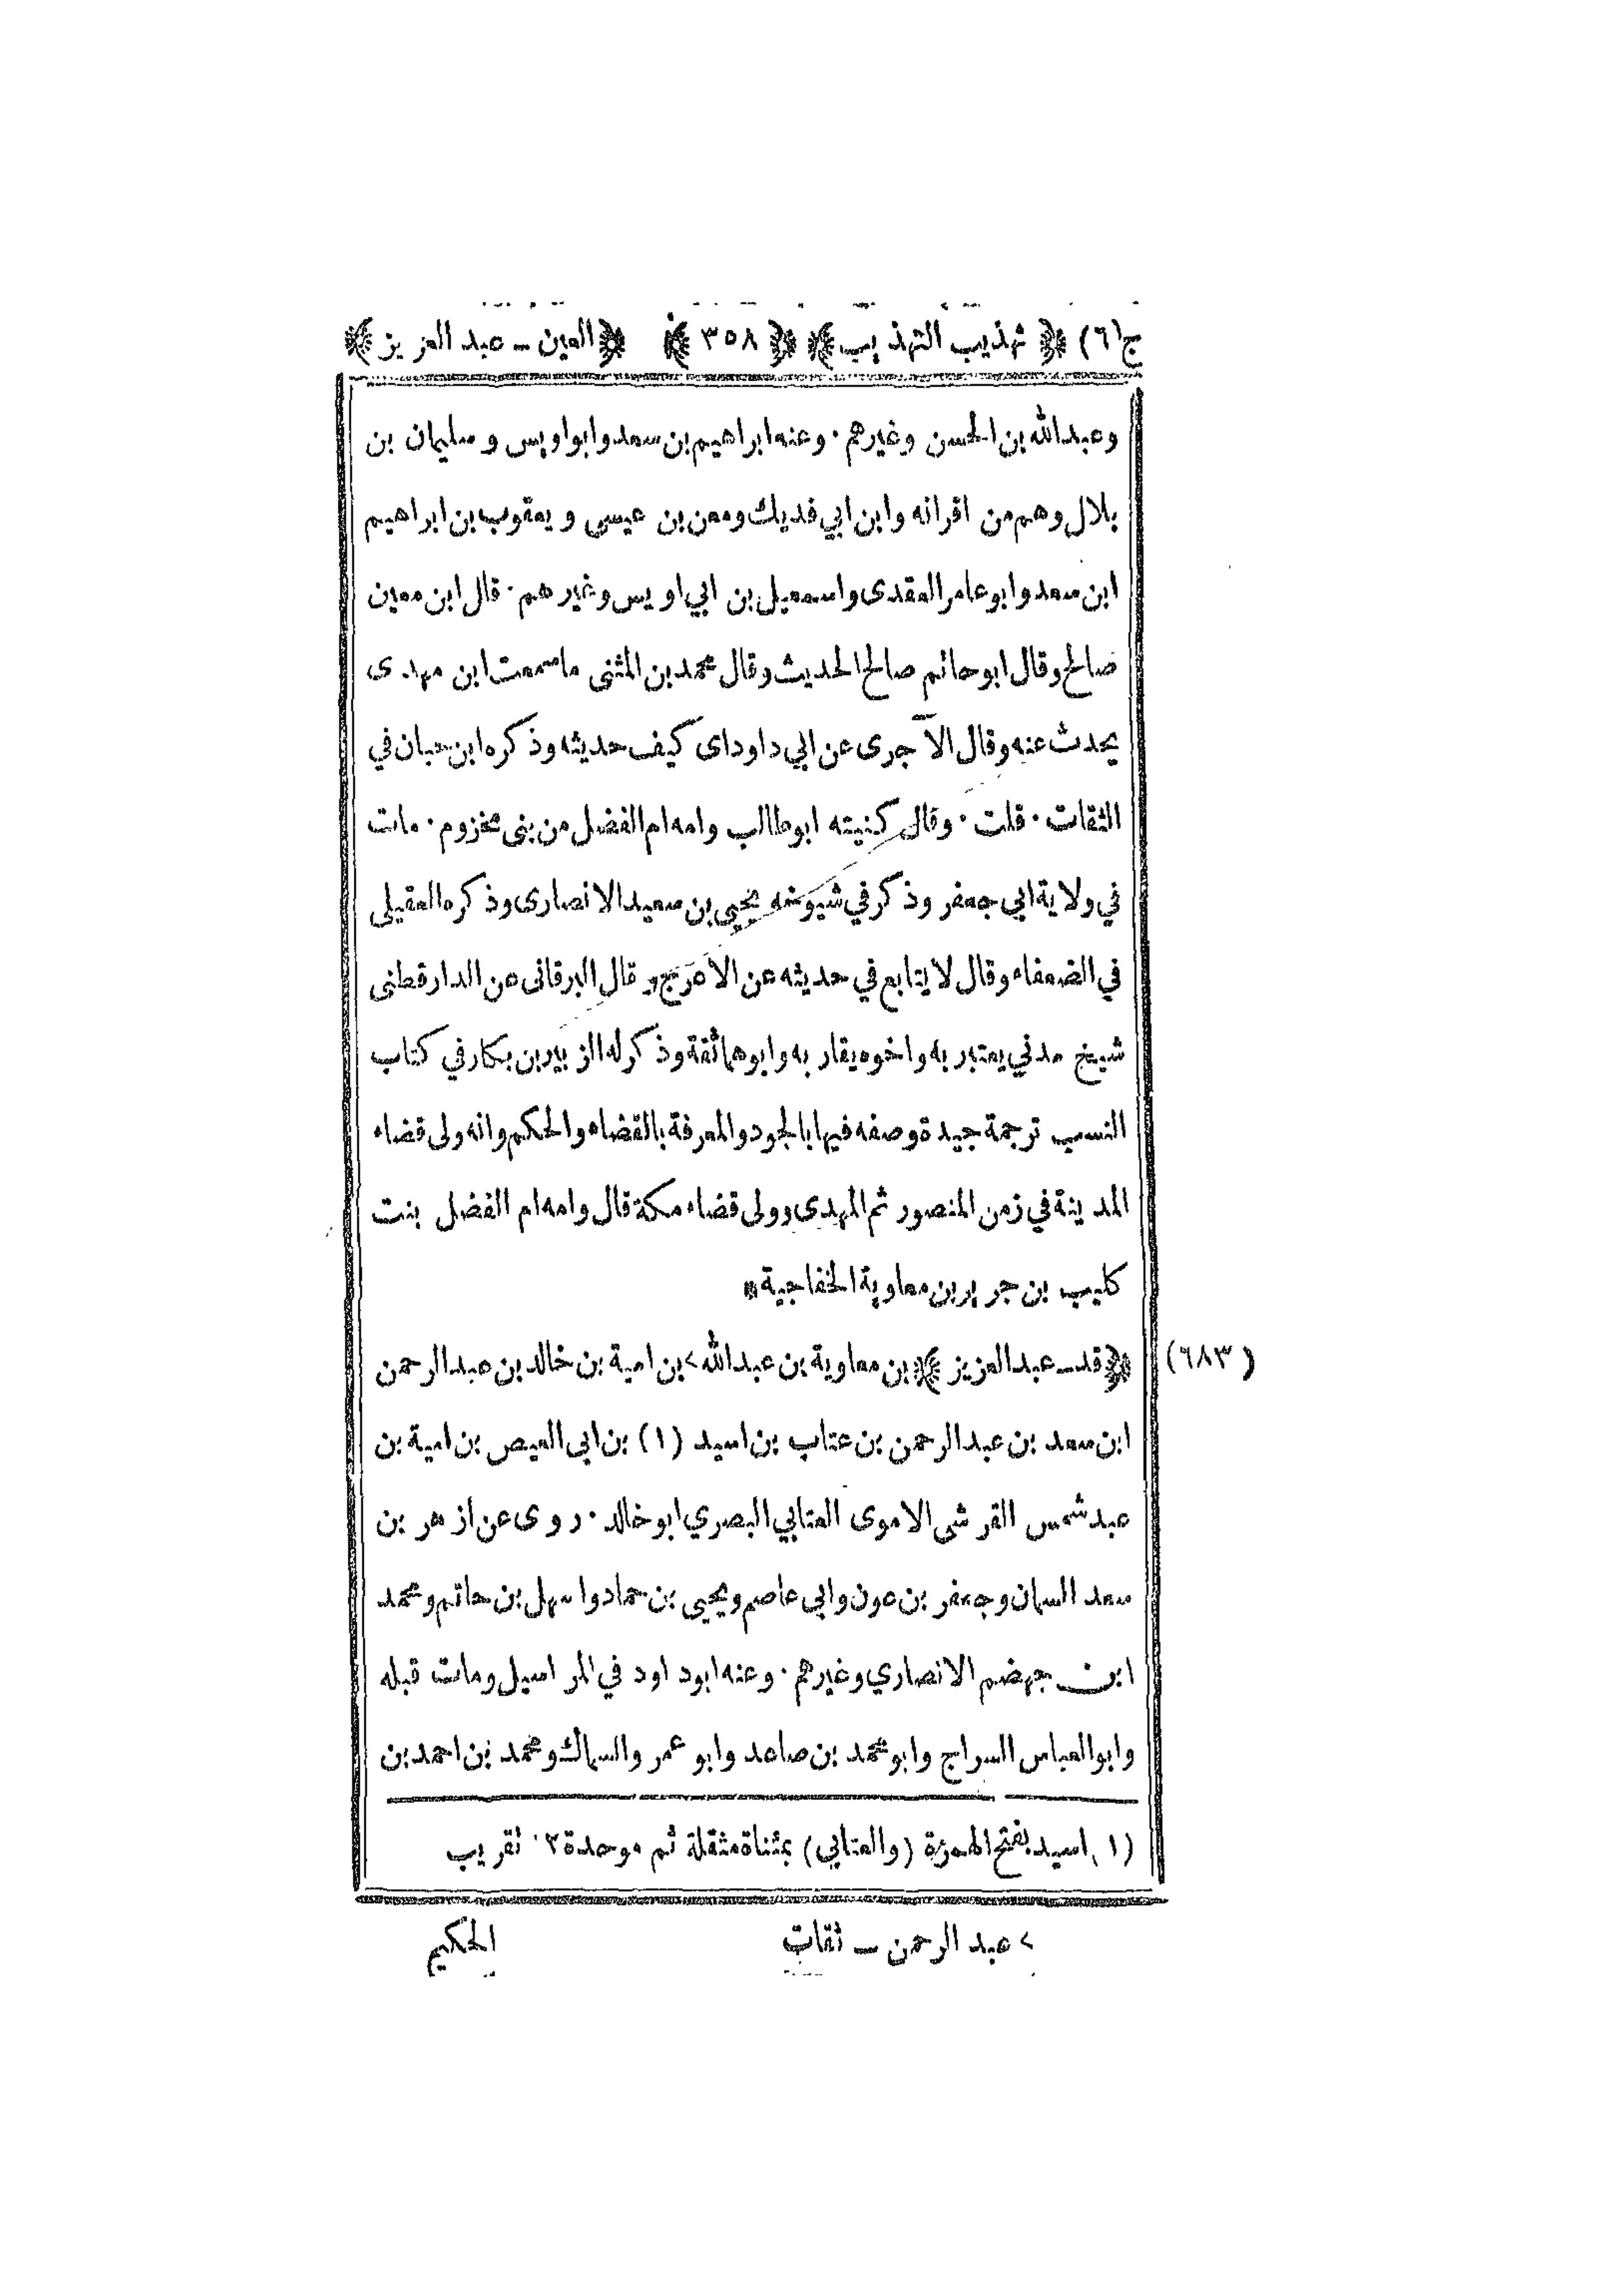 ج(٦) ﴿ تهذيب التهذيب ﴾ ﴿ ٣٥٨ ﴾ ﴿ العين ـ عبد العزيز ﴾
وعبدالله بن الحسن وغيرهم ٠ وعنه ابراهيم بن سعد وابو اويس وسليمان بن
بلال وهم من اقرانه وابن ابي فديك ومعن بن عيسى ويعقوب بن ابراهيم
ابن سعد وابو عامر العقدى واسمعيل بن ابي اويس وغيرهم ٠ قال ابن معين
صالح وقال ابو حاتم صالح الحديث وقال محمد بن المثنى ماسمعت ابن مهدى
يحدث عنه وقال الآجرى عن ابي داود اى كيف حديثه وذكره ابن حبان في
الثقات ٠ قلت ٠ وقال كنيته ابوطالب وامه ام الفضل من بنى مخزوم ٠ مات
في ولاية ابي جعفر وذكر في شيوخه يحيى بن سعيد الانصارى وذكره العقيلى
في الضعفاء وقال لا يتابع في حديثه عن الاعرج وقال البرقانى عن الدارقطنى
شيخ مدني يعتبر به واخوه يقار به وابوهما ثقة وذكر له الزبير بن بكار في كتاب
النسب ترجمة جيدة وصفه فيها بالجود والمعرفة بالقضاء والحكم وانه ولى قضاء
المدينة في زمن المنصور ثم المهدى وولى قضاء مكة قال وامه ام الفضل بنت
كليب بن جرير بن معاوية الخفاجية *
(٦٨٣) ﴿ قد ـ عبد العزيز ﴾ بن معاوية بن عبدالله > بن امية بن خالد بن عبد الرحمن
ابن سعد بن عبد الرحمن بن عتاب بن اسيد (١) بن ابى العيص بن امية بن
عبد شمس القرشى الاموى العتابي البصري ابو خالد ٠ روى عن ازهر بن
سعد السمان وجعفر بن عون وابي عاصم ويحيى بن حماد واسهل بن حاتم ومحمد
ابن جهضم الانصاري وغيرهم ٠ وعنه ابو داود في المراسيل ومات قبله
وابو العباس السراج وابو محمد بن صاعد وابو عمر والسماك ومحمد بن احمد بن
(١) اسيد بفتح الهمزة (والعتابي) بمثناة مثقلة ثم موحدة ١٢ تقريب
> عبد الرحمن ـ ثقات
الحكيم